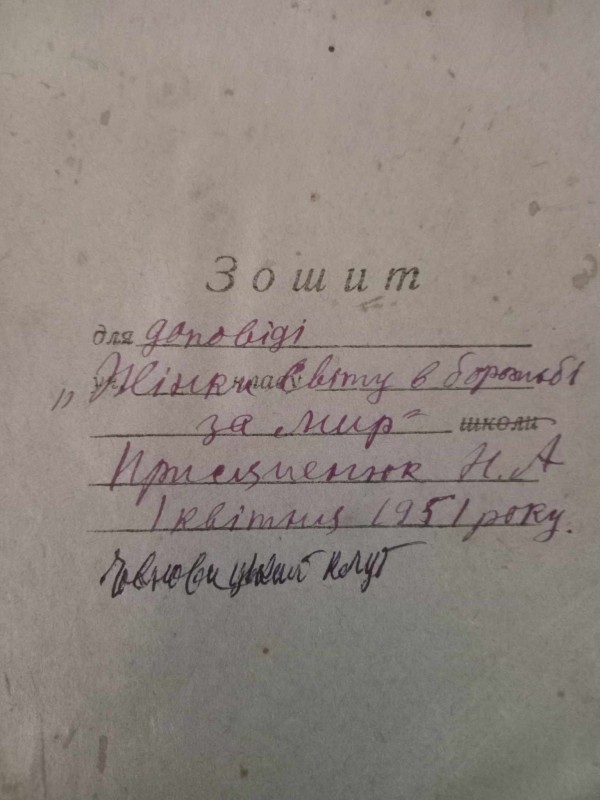 Зошит
для доповіді
„Жінки світу в боротьбі
за мир"
школи
Н. А
1 квітня 1951 року.
клуб